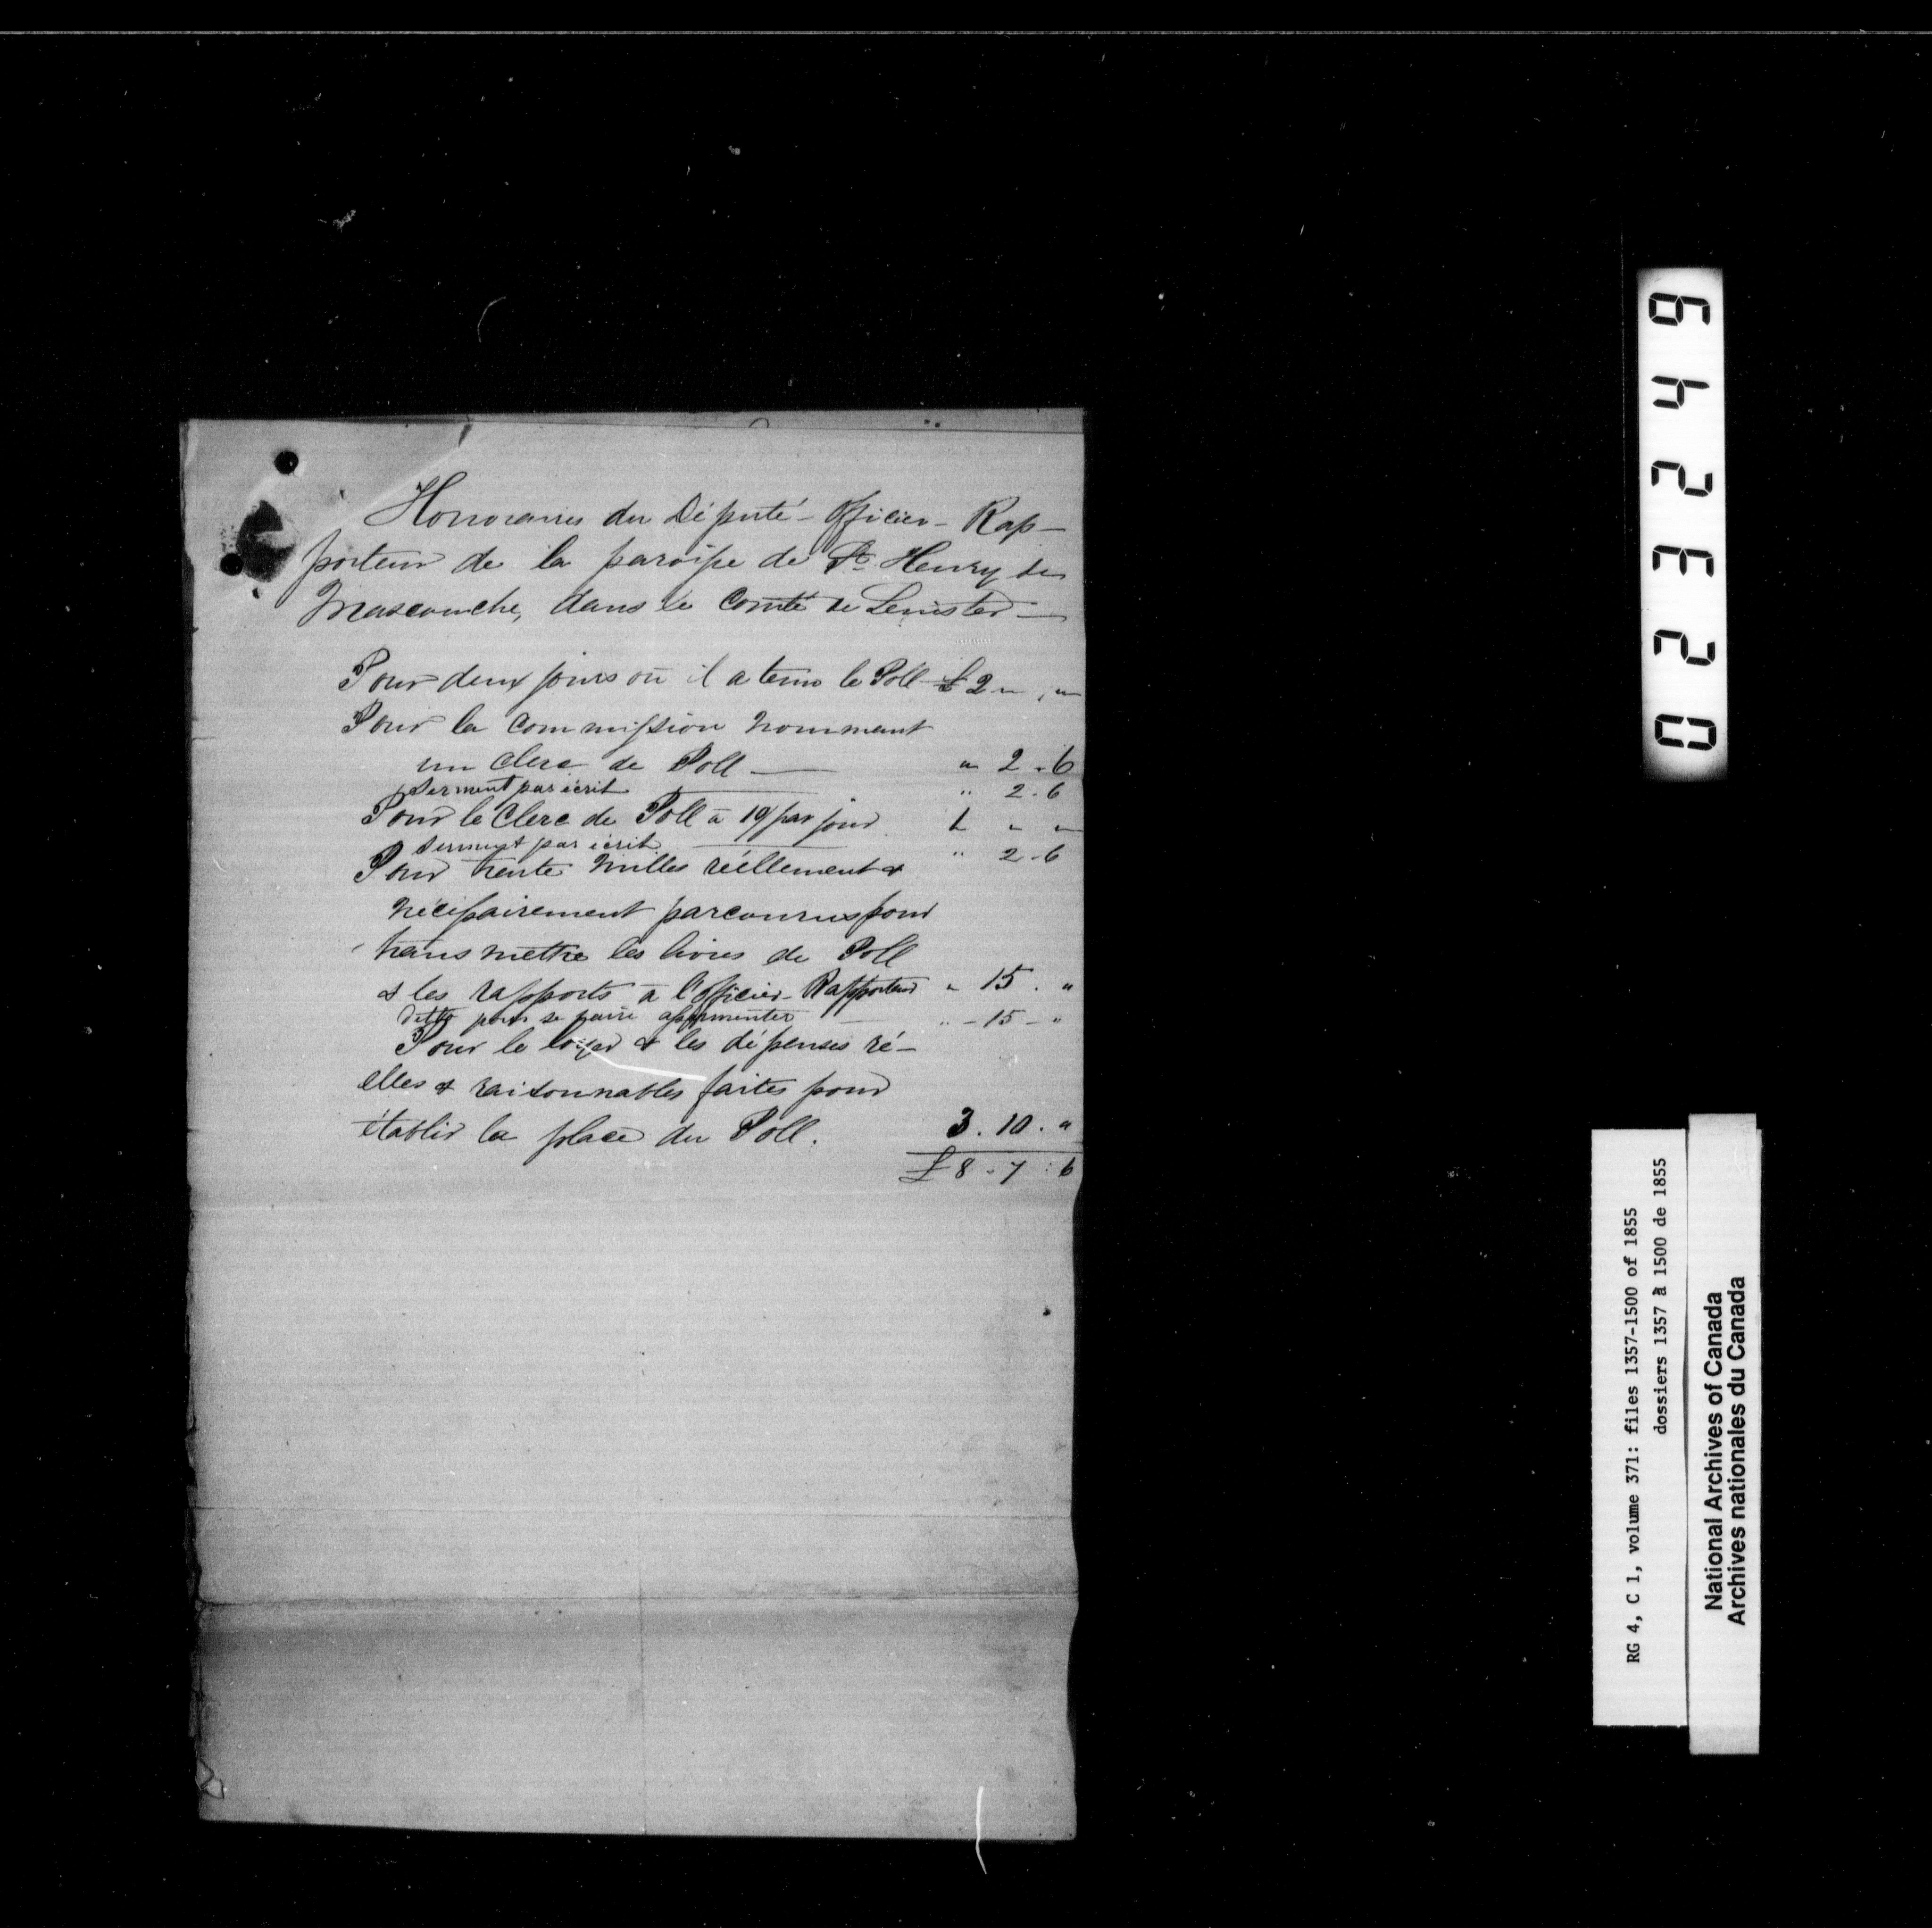 Honoraires du Député-Officier-Rap-
porteur de la paroisse de St. Henry de
Mascouche, dans le Comté de Leinster —
Pour deux jours où il a tenu le Poll £ 2 " . "
Pour la commission nommant
un clerc de Poll — " 2 . 6
Serment par écrit — " 2 . 6
Pour le Clerc de Poll à 10/ par jour 1 " "
Serment par écrit — " 2 . 6
Pour trente milles réellement &
nécessairement parcourus pour
transmettre les livres de Poll
& les rapports à l'Officier-Rapporteur " 15 . "
Ditto pour se faire assermenter — " - 15 - "
Pour le loyer & les dépenses ré-
elles & raisonnables faites pour
établir la place du Poll. 3 . 10 . "
£ 8 - 7 : 6
023249
RG 4, C 1, volume 371: files 1357-1500 of 1855
dossiers 1357 à 1500 de 1855
National Archives of Canada
Archives nationales du Canada